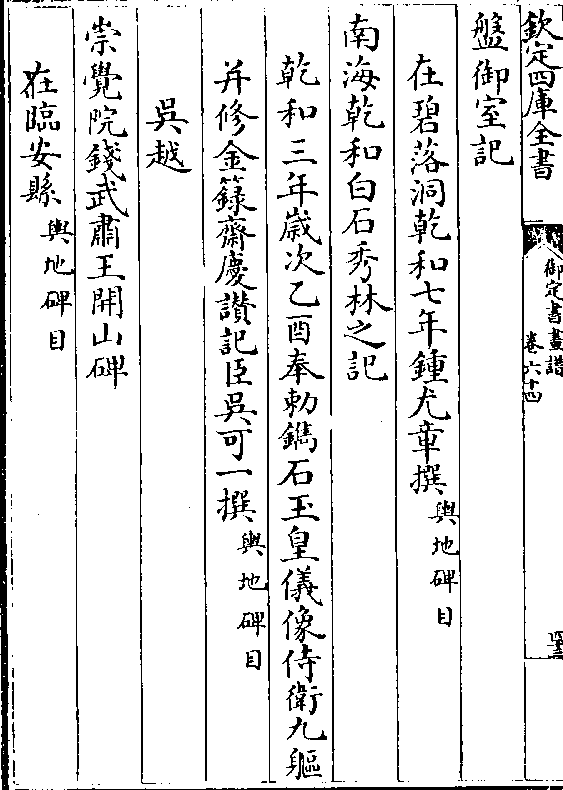 欽定四庫全書
御定書畫譜
卷六十四
盤御室記
在碧落洞乾和七年鍾允章撰輿地碑目
南海乾和白石秀林之記
乾和三年歲次乙酉奉勅鐫石玉皇儀像侍衛九軀
并修金籙齋慶讃記臣吳可一撰輿地碑目
吳越
崇覺院錢武肅王開山碑
在臨安縣輿地碑目